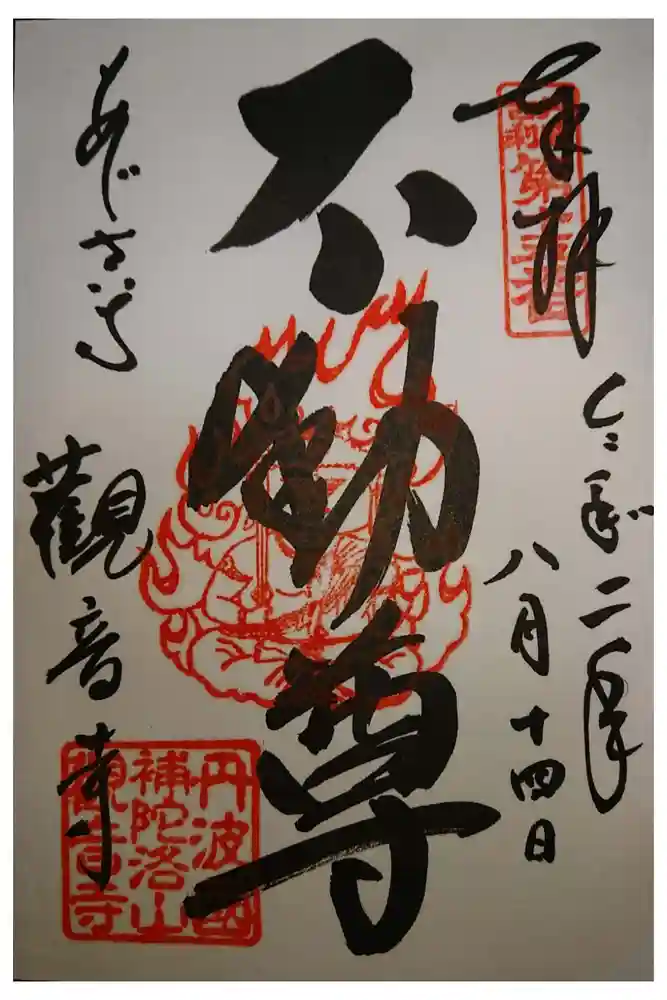 奉拝
第十三番
令和二年
八月十四日
不動尊
あじさい寺
觀音寺
丹波國
補陀洛山
觀音寺